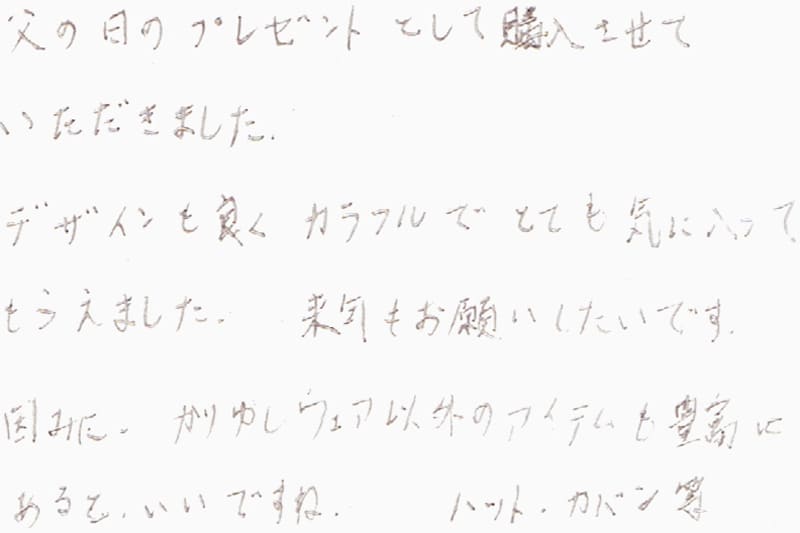 父の日のプレゼントとして購入させて
いただきました.
デザインも良くカラフルでとても気に入って
もらえました. 来年もお願いしたいです.
因みに. かりゆしウェア以外のアイテムも豊富に
あると、いいですね. ハット・カバン等